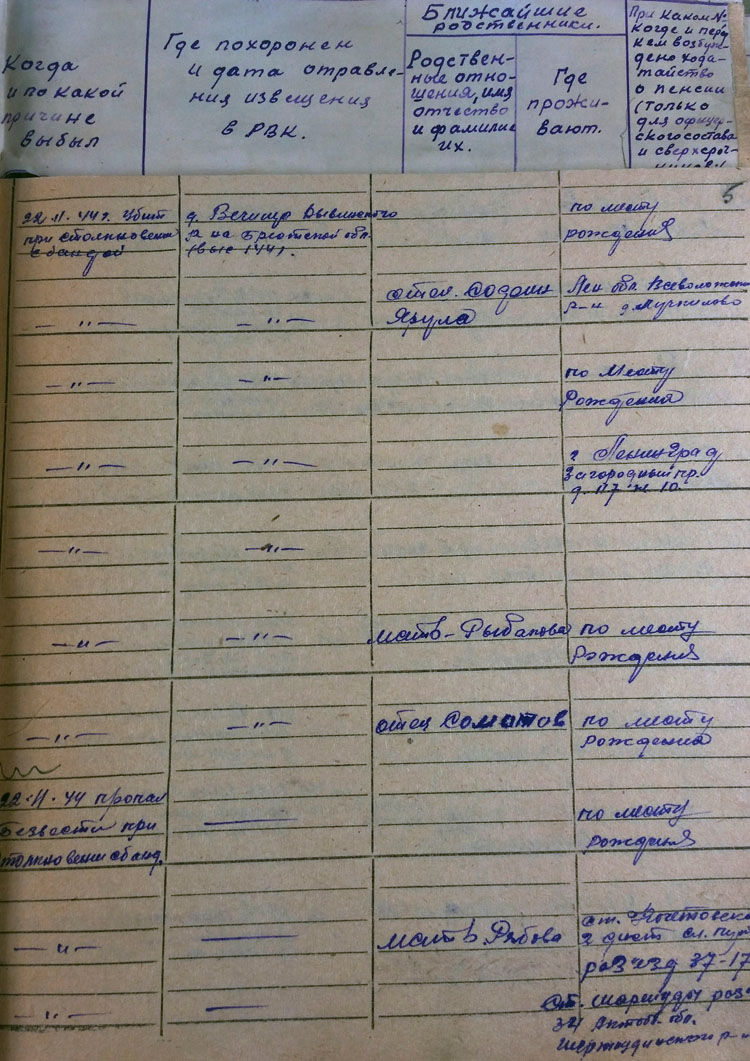 Когда
и по какой
причине
выбыл
Где похоронен
и дата отправле-
ния извещения
в РВК.
Ближайшие
родственники.
Родствен-
ные отно-
шения, имя
отчество
и фамилие
их.
Где
прожи-
вают.
При каком №
когда и перед
кем возбуж-
дено хода-
тайство
о пенсии
(только
для офицер-
ского состава
и сверхсроч-
5
22·II·44г. убит
при столкновении
с бандой
д. Вечитр Дывинского
р-на Брестской обл.
(выс 144).
по месту
рождения
— " —
— " —
отец. Содолин
Ярула
Лен обл. Всеволожский
р-н д.
— " —
— " —
по месту
Рождения
— " —
— " —
г Ленинград
Загородный пр.
д. 17 к 10.
— " —
— " —
— " —
— " —
мать-Рыбакова
по месту
рождения
— " —
— " —
отец Соматов
по месту
рождения
22·II·44 пропал
безвести при
столкновени с банд.
—
по месту
рождения
— " —
—
мать Рябова
ст.
разъезд 37-17
— " —
—
ст.
34 Актюб. обл.